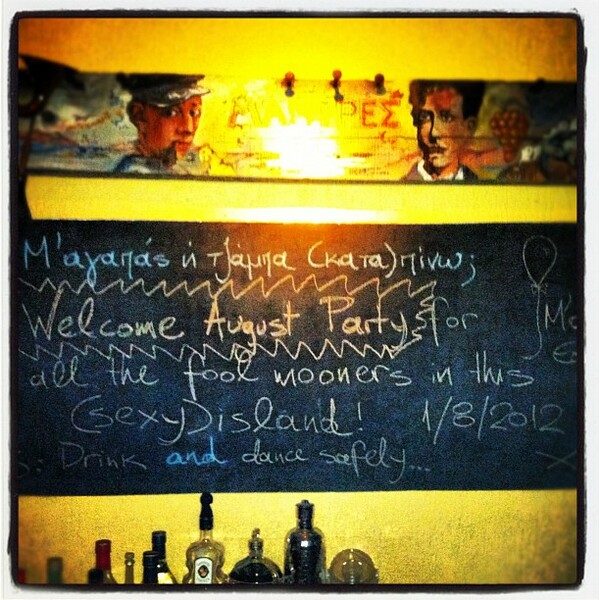 Μ' αγαπάς ή τζάμπα (κατα)πίνω;
Welcome August Party for
all the fool mooners in this
(sexy) island! 1/8/2012
Drink and dance safely...